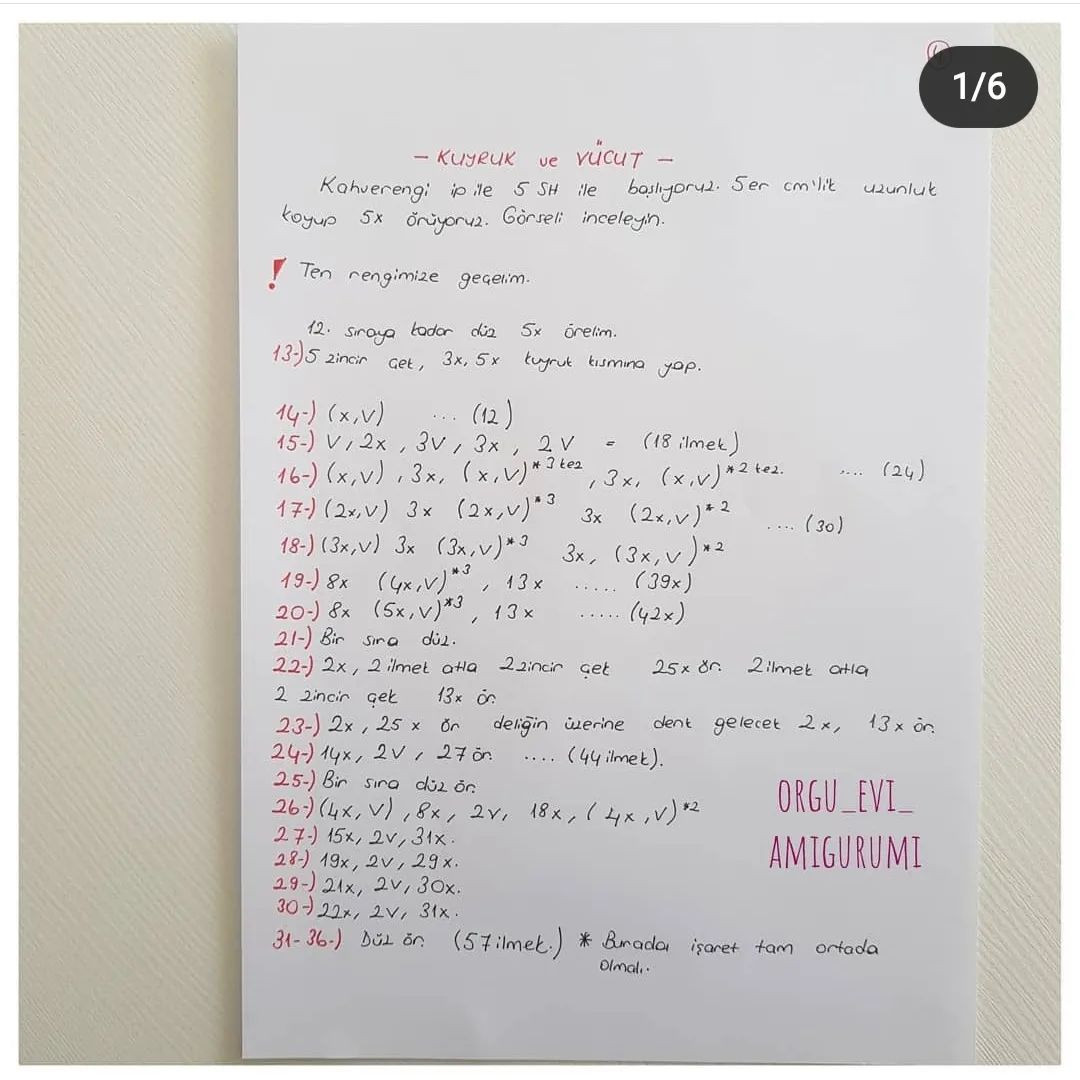 1/6
- KUYRUK ve VÜCUT -
Kahverengi ip ile 5 SH ile başlıyoruz. 5er cm'lik uzunluk
koyup 5x örüyoruz. Görseli inceleyin.
! Ten rengimize geçelim.
12. sıraya kadar düz 5x örelim.
13-) 5 zincir çek, 3x, 5x kuyruk kısmına yap.
14-) (x,V) .... (12)
15-) V, 2x, 3V, 3x, 2V = (18 ilmek)
16-) (x,V), 3x, (x,V)*3 kez, 3x, (x,V)*2 kez. .... (24)
17-) (2x,V) 3x (2x,V)*3 3x (2x,V)*2 .... (30)
18-) (3x,V) 3x (3x,V)*3 3x, (3x,V)*2
19-) 8x (4x,V)*3, 13x ..... (39x)
20-) 8x (5x,V)*3, 13x ..... (42x)
21-) Bir sıra düz.
22-) 2x, 2 ilmek atla 2 zincir çek 25x ör. 2 ilmek atla
2 zincir çek 13x ör.
23-) 2x, 25x ör deliğin üzerine denk gelecek 2x, 13x ör.
24-) 14x, 2V, 27 ör. .... (44 ilmek).
25-) Bir sıra düz ör.
26-) (4x, V), 8x, 2V, 18x, (4x,V)*2
27-) 15x, 2V, 31x.
28-) 19x, 2V, 29x.
29-) 21x, 2V, 30x.
30-) 22x, 2V, 31x.
31-36-) Düz ör. (57 ilmek.) * Burada işaret tam ortada
olmalı.
ORGU_EVI_
AMIGURUMI